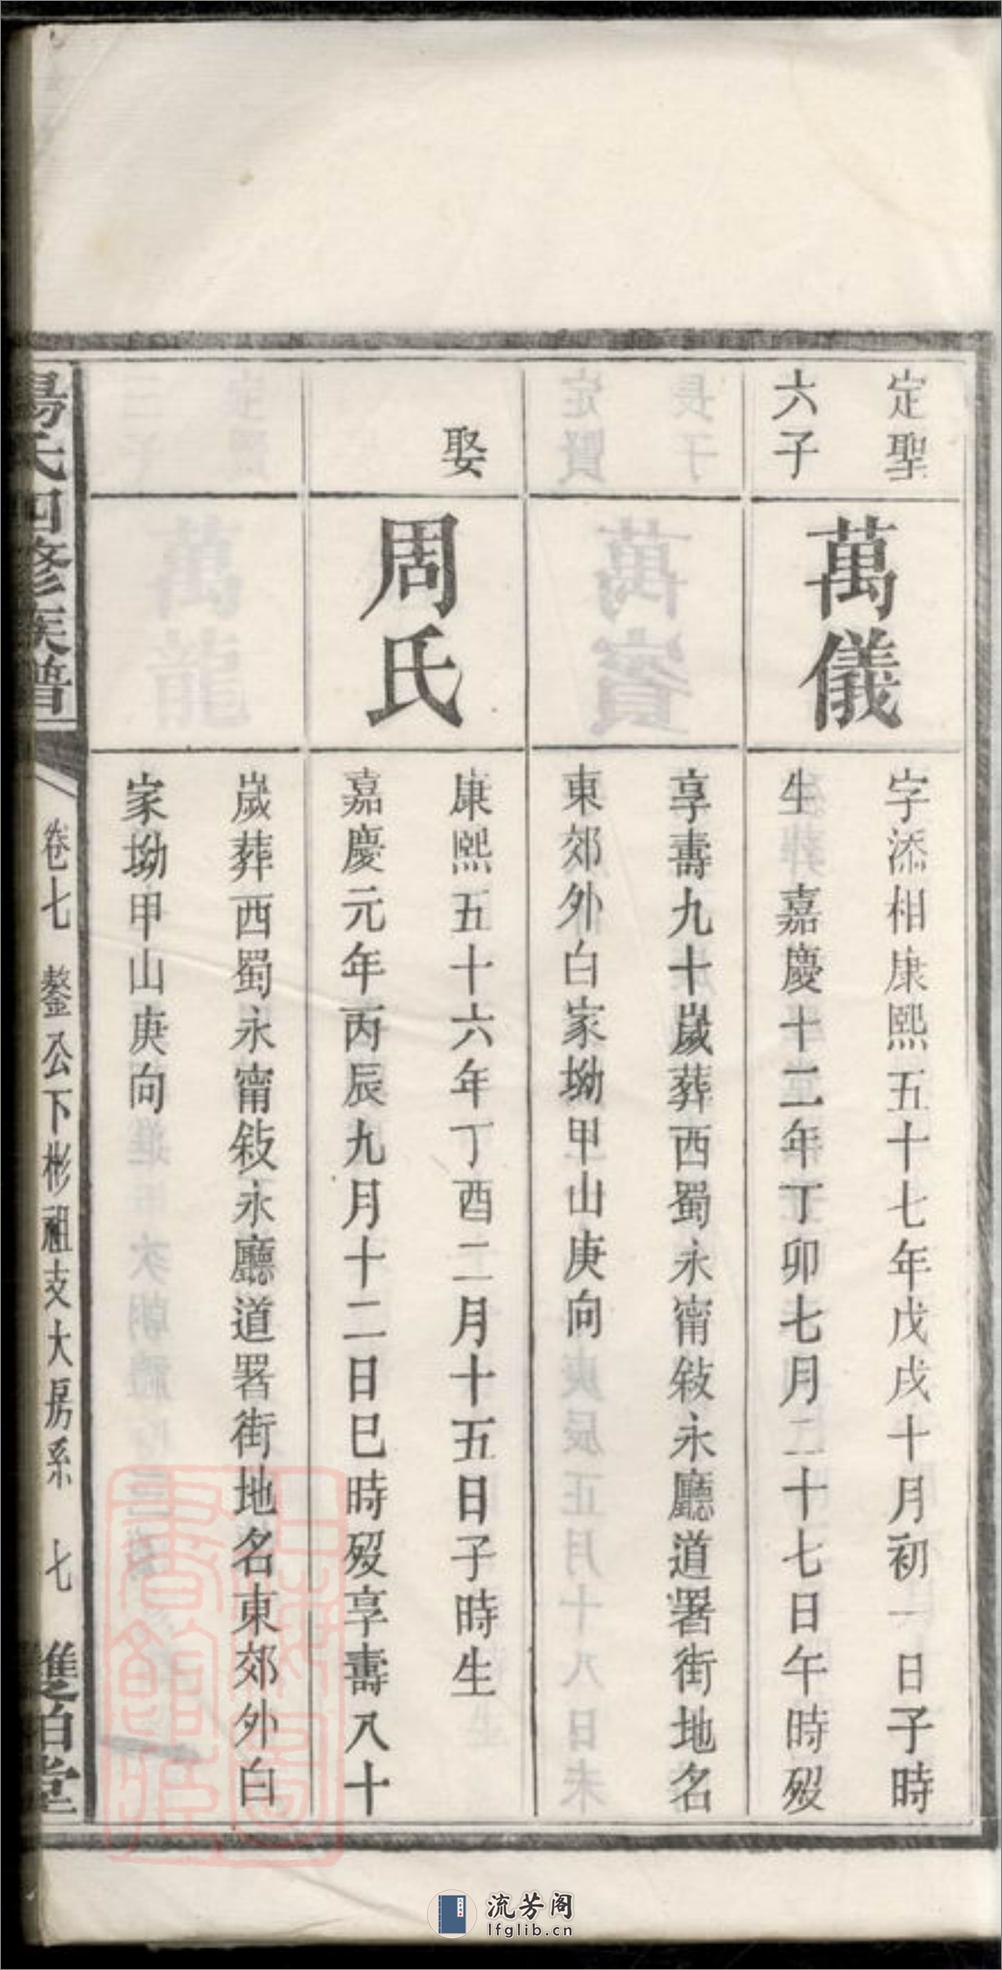 定聖
六子
萬儀
字添相康熙五十七年戊戌十月初一日子時
生嘉慶十二年丁卯七月二十七日午時歿
享壽九十歲葬西蜀永甯敍永廳道署街地名
東郊外白家坳甲山庚向
娶
周氏
康熙五十六年丁酉二月十五日子時生
嘉慶元年丙辰九月十二日巳時歿享壽八十
歲葬西蜀永甯敍永廳道署街地名東郊外白
家坳甲山庚向
氏四修族譜
卷七 鏊公下彬祖支大房系 七 雙柏堂
流芳阁
lfglib.cn